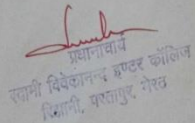 प्रधानाचार्य
स्वामी विवेकानन्द इण्टर कॉलिज
रिझानी, परतापुर, मेरठ